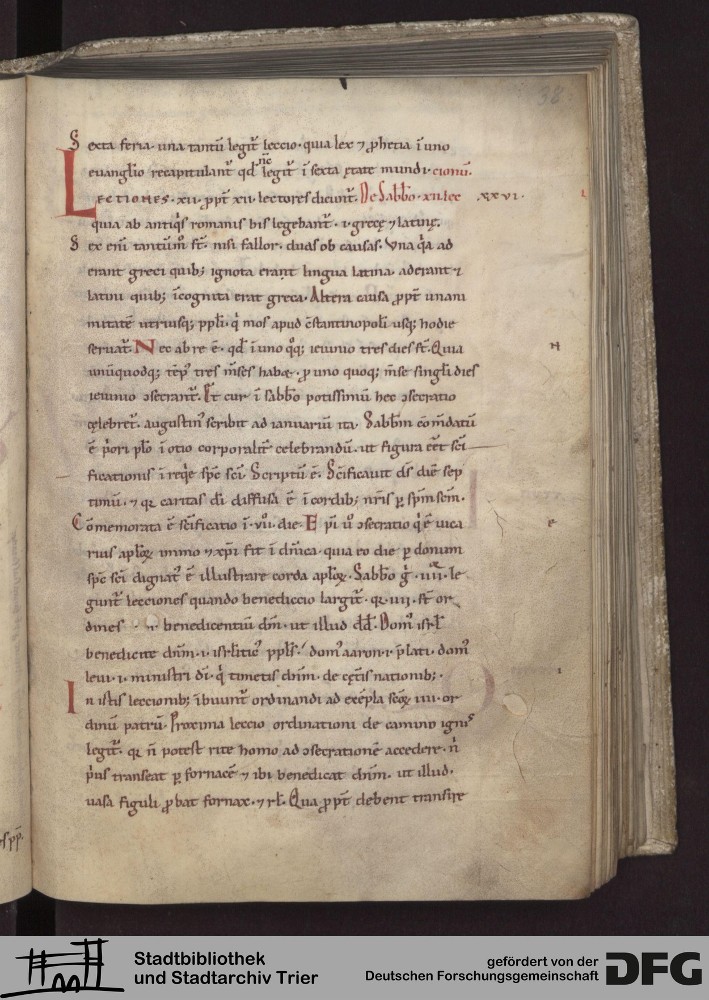 38
Sexta feria· una tantū legit᷑ leccio· quia lex ⁊ ꝓphetia ī uno
euanglio recapitulant᷑ qđ nc̄ legit᷑ ī sexta ętate mundi· cionū.
LECTIONES· xii· ꝓpt̄ xii· lectores dicunt᷑. De Sabbo· xii lec xxvi·
quia ab antiq̇s romanis bis legebant᷑· i· grecę ⁊ latinę.
Sex eni tantum̄ st̄· nisi fallor· duas ob causas· Vna q̇a ad
erant greci quib; ignota erant lingua latina· aderant ⁊
latini quib; īcognita erat greca· Altera causa ꝓpt̄ unani
mitatē utriusq; ppli· q̇ mos apud c̄stantinopoli usq; hodie
seruat᷑· Nec ab re ē· qđ ī uno q̊q; ieiunio tres dies st̄· Quia
unūquodq; tēp᷒ tres m̄ses habet· ꝓ uno quoq; m̄se singli dies
ieiunio ɔsecrant᷑. Et cur ī sabbo potissimū hec ɔsecratio
cęlebret᷑· augustin᷒ scribit ad ianuariū ita· Sabbm cōm̄datū
ē ṗori plo ī otio corporalit᷑ celebrandū· ut figura eēt sci
ficationis ī reqe spc̄ sci· Scriptū ē· Scificauit ds diē sep
timū· ⁊ qr caritas di diffusa ē ī cordib; nris ꝑ spm scm·
Cōmemorata ē scificatio ī· vii· die· Epi u᷒ ɔsecratio q̇ ē uica
rius aploꝝ immo ⁊ xpi fit ī dn̄ica· quia eo die ꝑ donum
spc̄ sci dignat᷒ ē illustrare corda aploꝝ· Sabbo g̊· iiii· le
gunt᷑ lecciones quando benediccio largit᷑· qr· iiii· st̄ or
dines benedicentiū dm̄· ut illud dđ· Dom᷒ isrl
benedicite dnm· i· isrlitic᷒ ppls· dom᷒ aaron· i· p̄lati· dom᷒
leui· i· ministri di· q̇ timetis dnm· de cętis nationib;·
In istis leccionib; ībuunt᷑ ordinandi ad exēpla scoꝝ iiii· or
dinū patrū· Proxima leccio ordinationi de camino ignis
legit᷑· qr n̄ potest rite homo ad ɔsecrationē accedere· n̄
ṗus transeat ꝑ fornacē ⁊ ibi benedicat dnm· ut illud·
uasa figuli ꝓbat fornax· ⁊ rl· Qua ꝓpt̄ debent transire
Stadtbibliothek
und Stadtarchiv Trier
gefördert von der
Deutschen Forschungsgemeinschaft
DFG